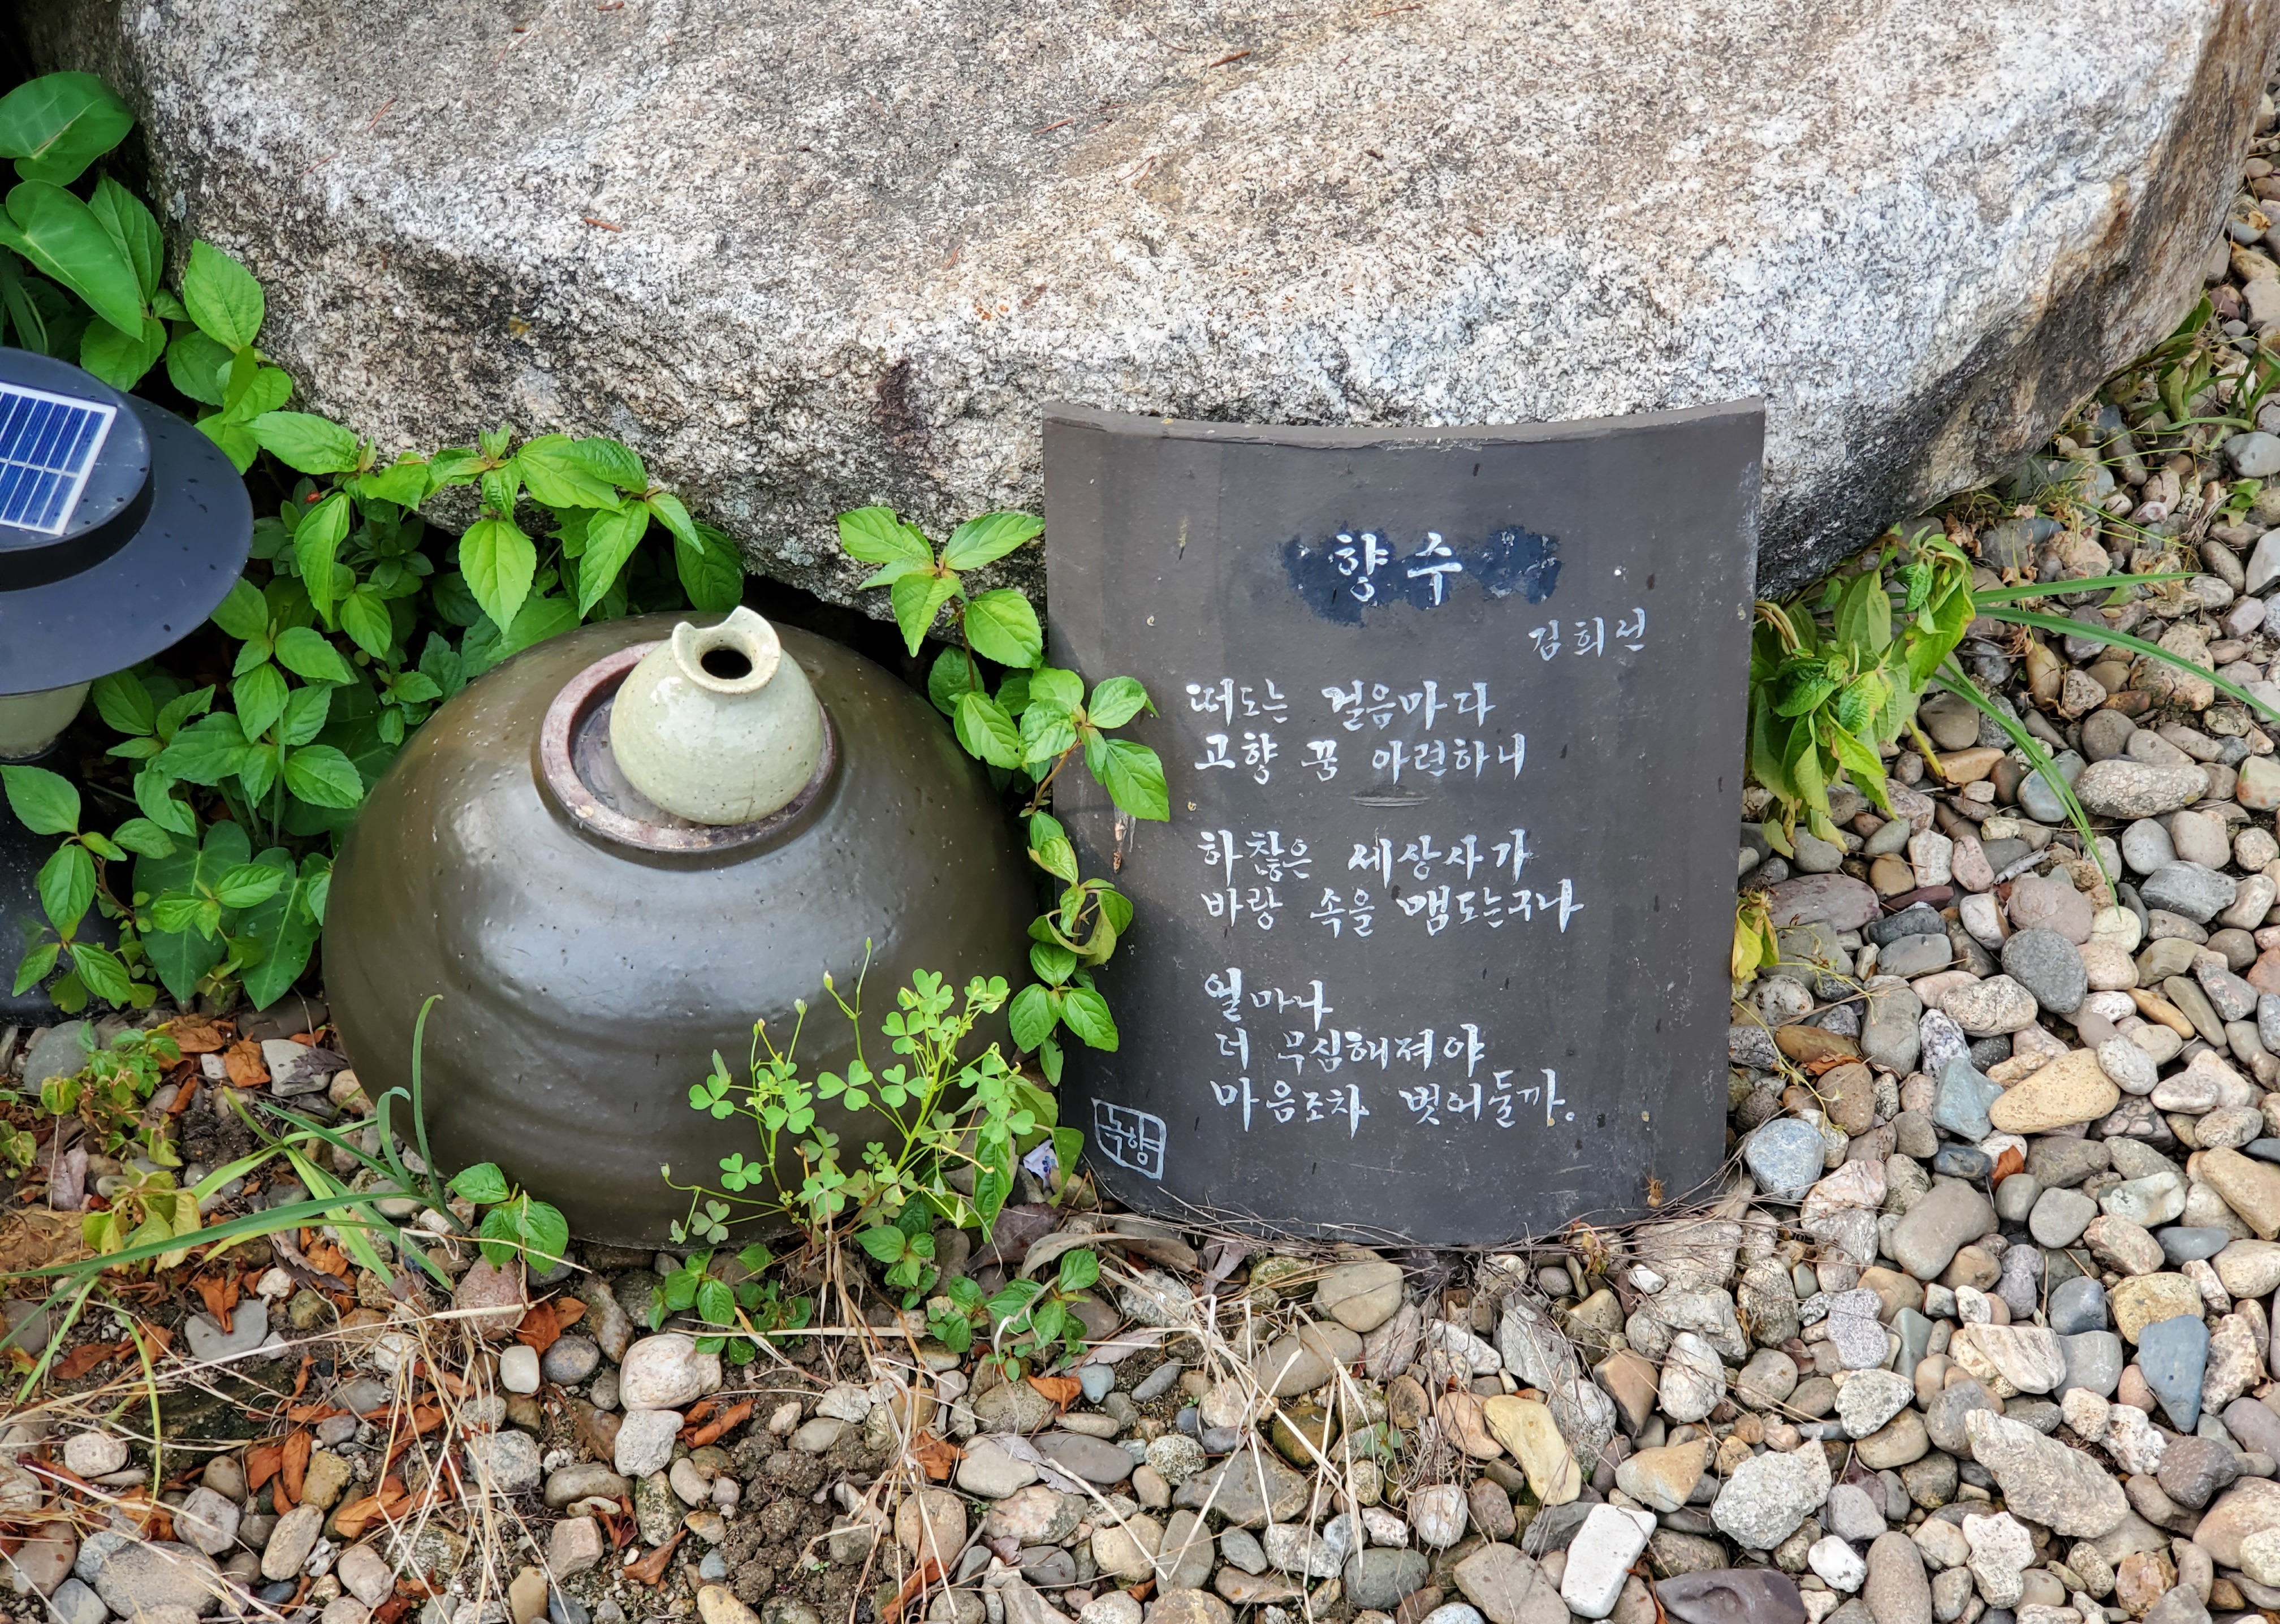 향수
김희선
떠도는 걸음마다
고향 꿈 아련하니
하찮은 세상사가
바람 속을 맴도는구나
얼마나
더 무심해져야
마음조차 벗어둘까.
녹향